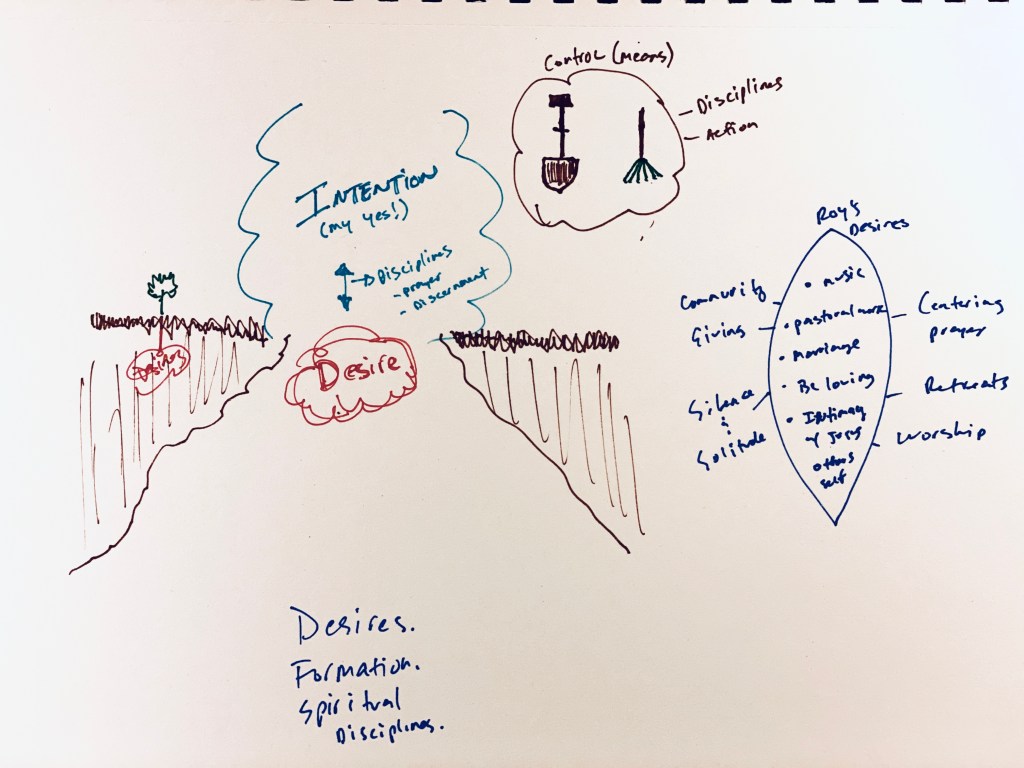 Control (means)
- Disciplines
- Action
INTENTION
(my yes!)
→ Disciplines
- prayer
- Discernment
Desire
Desires
Roy's
Desires
• music
• pastoral work
• marriage
• Be loving
• Intimacy
w/ Jesus
others
self
Community
Giving
Silence
&
Solitude
Centering
prayer
Retreats
Worship
Desires.
Formation.
Spiritual
Disciplines.